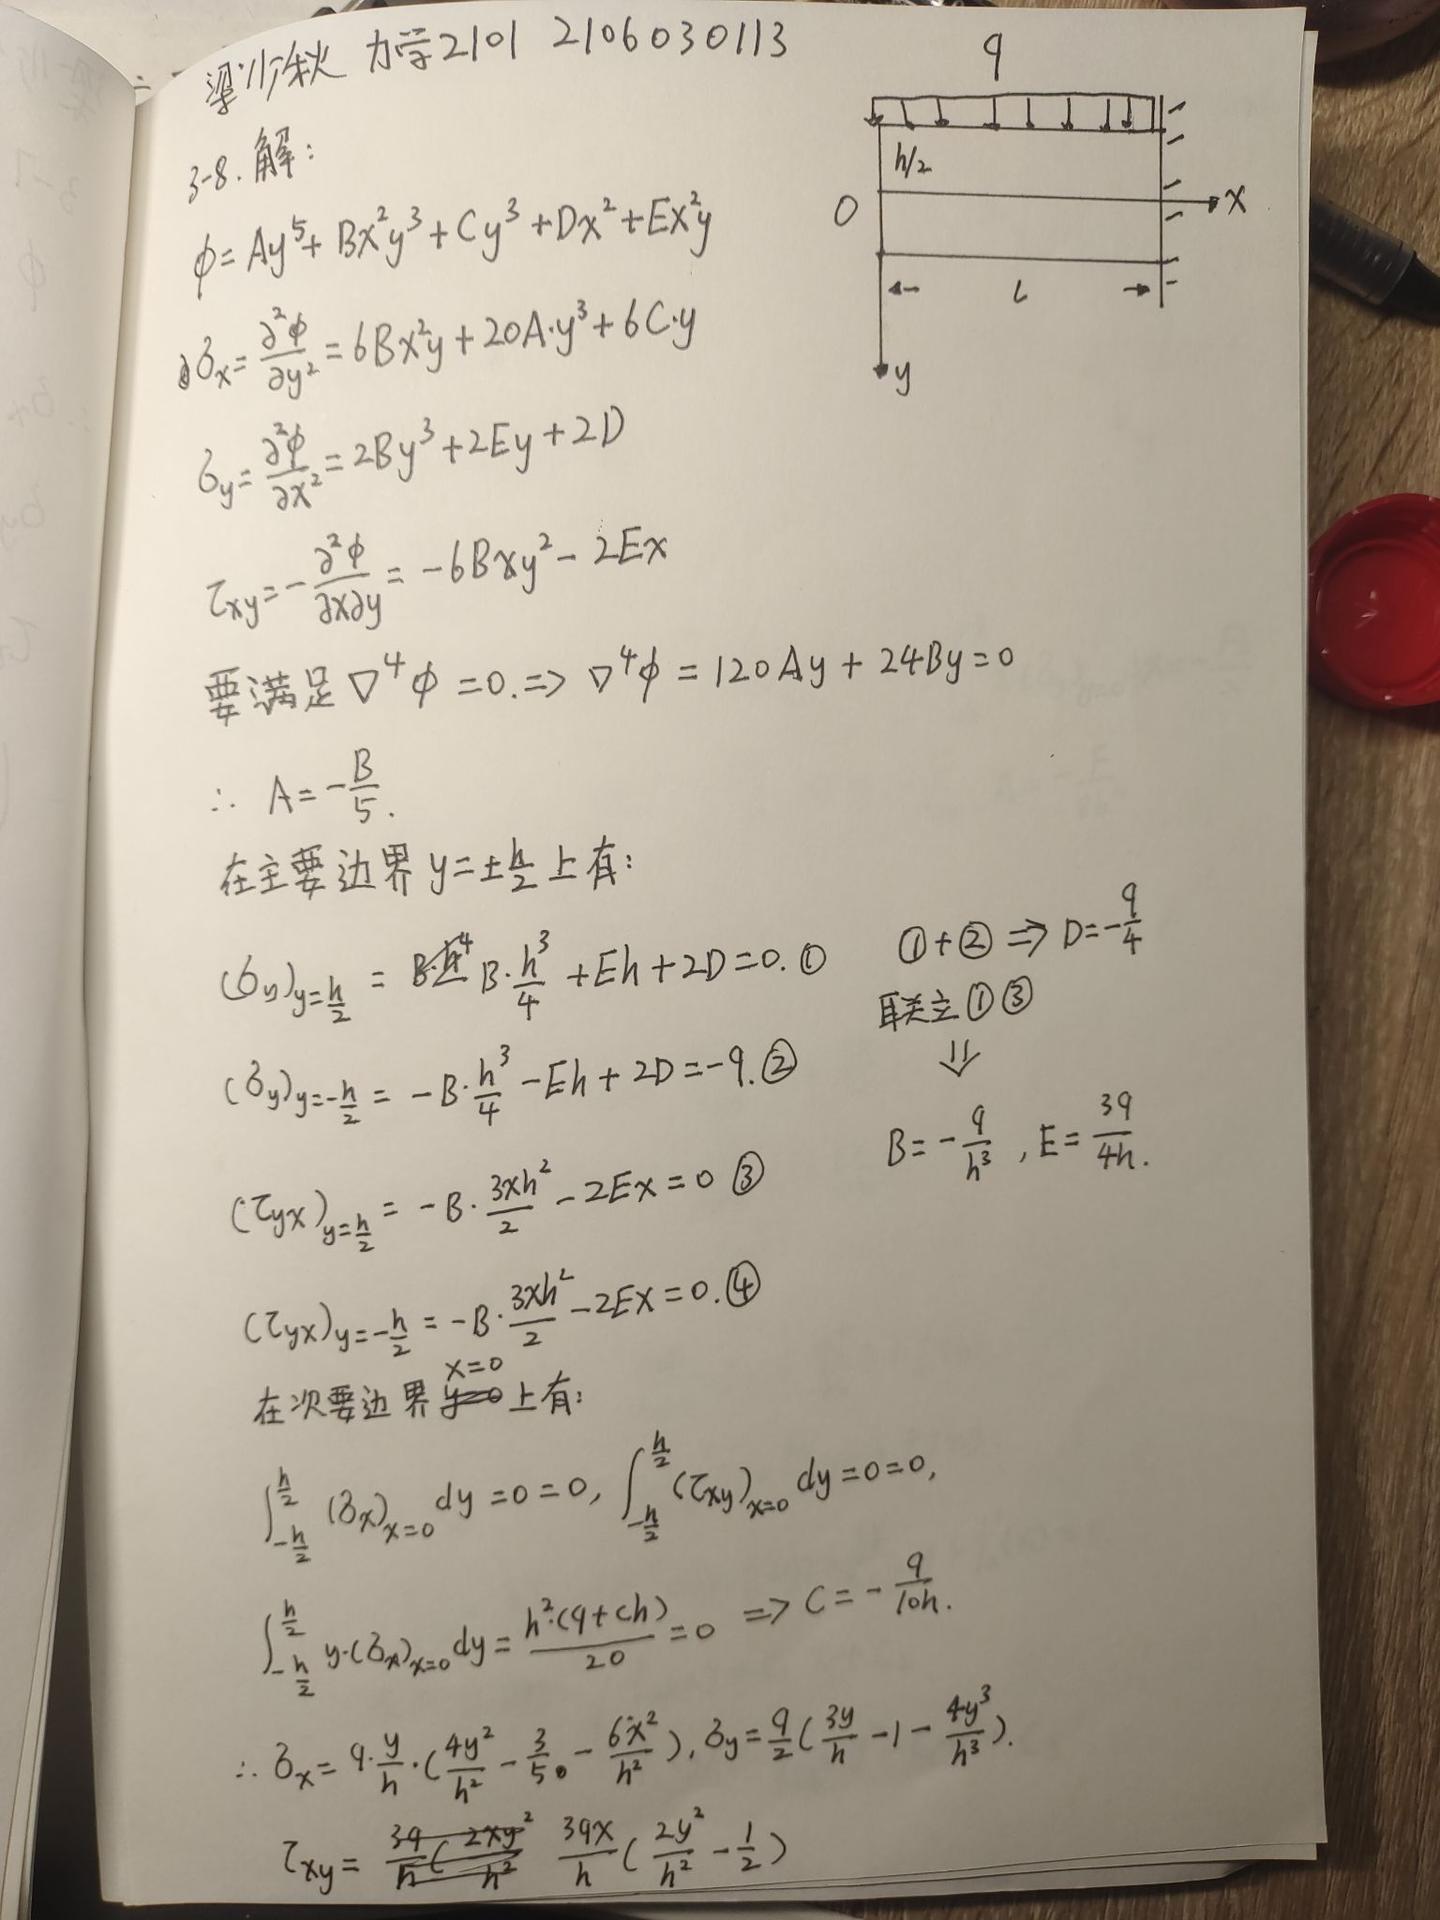 梁 秋 力学2101 2106030113
q
h/2
O
x
L
y
3-8.解:
ϕ=Ay⁵+Bx²y³+Cy³+Dx²+Ex²y
σx=∂²ϕ/∂y²=6Bx²y+20A·y³+6C·y
σy=∂²ϕ/∂x²=2By³+2Ey+2D
τxy=-∂²ϕ/∂x∂y=-6Bxy²-2Ex
要满足∇⁴ϕ=0.⇒∇⁴ϕ=120Ay+24By=0
∴ A=-B/5.
在主要边界y=±h/2上有:
(σy)y=h/2 = B·h³/4+Eh+2D=0.①
①+②⇒D=-q/4
联立①③
⇓
(σy)y=-h/2 = -B·h³/4-Eh+2D=-q.②
B=-q/h³,E=3q/4h.
(τyx)y=h/2 = -B·3xh²/2-2Ex=0③
(τyx)y=-h/2 = -B·3xh²/2-2Ex=0.④
在次要边界x=0上有:
∫_{-h/2}^{h/2}(σx)x=0 dy=0=0,∫_{-h/2}^{h/2}(τxy)x=0 dy=0=0,
∫_{-h/2}^{h/2}y·(σx)x=0 dy=h²·(q+ch)/20=0 ⇒C=-q/10h.
∴σx=q·y/h·(4y²/h²-3/5-6x²/h²),σy=q/2(3y/h-1-4y³/h³).
τxy= 3qx/h(2y²/h²-1/2)